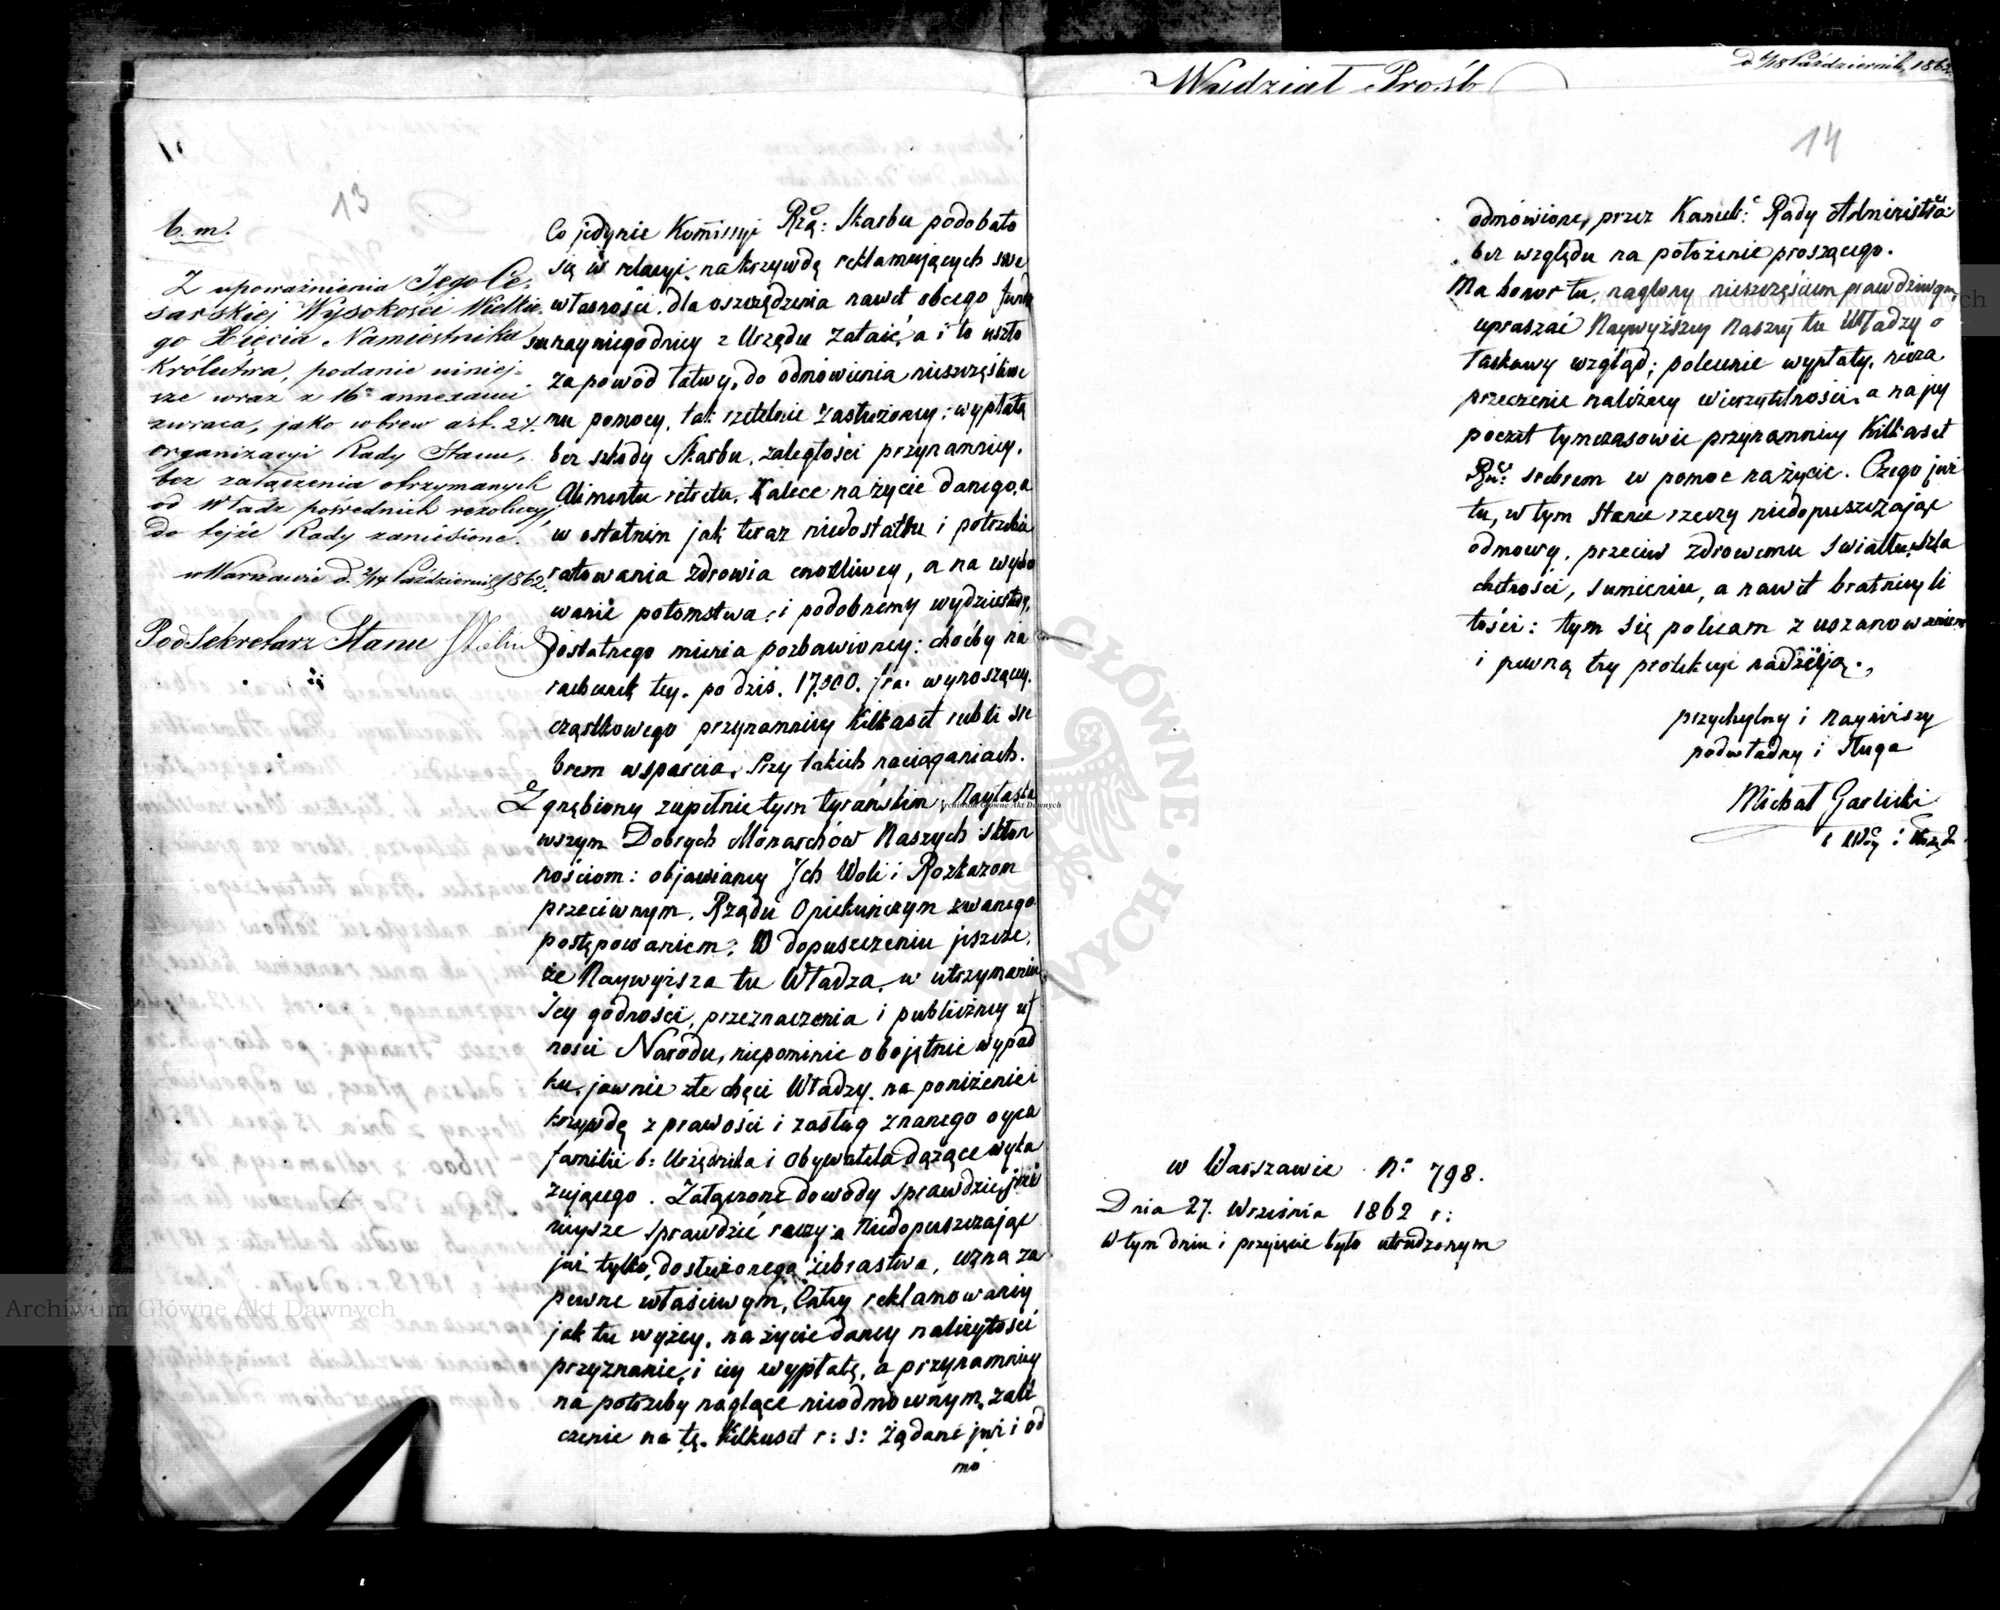 13
b. m.
Z upoważnienia Jego Ce-
sarskiej Wysokości Wielkie-
go Xięcia Namiestnika
Królestwa, podanie niniej-
sze wraz z 16 annexami
zwraca, jako wbrew art. 24.
organizacyi Rady Stanu,
bez załączenia otrzymanych
od Władz pośrednich rezolucyj
do tejże Rady zaniesione.
w Warszawie d. 2/14 Października 1862.
Podsekretarz Stanu
Co jedynie Komissyi Rzą: Skarbu podobało
się w relacyi, na krzywdę reklamujących swe
własności, dla oszczędzenia nawet obcego fundu
su nayniegodniey z Urzędu zataić, a i to uszło
za powód łatwy, do odmówienia nieszczęśliwe
mu pomocy, tak rzetelnie zasłużoney; wypłatą
bez szkody Skarbu, zaległości przynamniey.
Alimentu retretu, Kalece na życie danego, a
w ostatnim jak teraz niedostatku i potrzebie
ratowania zdrowia cnotliwey, a na wycho
wanie potomstwa; i podobnemy wydziestwy,
dostatnego mienia pozbawioney: choćby na
rachunek tey. po dziś. 17,000. fra: wynoszącey.
cząstkowego przynamniey Kilkaset rubli sre
brem wsparcia. Przy takich naciąganiach.
Zgnębiony zupełnie tym tyrańskim, Nayłaska
wszym Dobrych Monarchów Naszych skłon
nościom: objawianey Ich Woli i Rozkazom
przeciwnym, Rządu Opiekuńczym zwanego
postępowaniem; W dopuszczeniu jeszcze,
że Naywyższa tu Władza, w utrzymaniu
Jey godności, przeznaczenia i publiczney uf
ności Narodu, niepominie obojętnie wypad
ku, jawnie złe chęci Władzy, na poniżenie i
krzywdę z prawości i zasług znanego oyca
familii b: Urzędnika i Obywatela dążące wyka
zującego. Załączone dowody sprawdzie, jeże
niysze sprawdzić raczy; a Niedopuszczając
już tylko, dosłużonego żebractwa, uzna za
pewne właściwym, Całey reklamowaney
jak tu wyżey, na życie daney należytości
przyznanie, i iey wypłatę, a przynamniey
na potrzeby naglące nieodmownym, zali
czenie na tę. Kilkaset r: s: żądane już i od
mó
Wydział Próśb
d 6/18 Października 1862.
14
odmówione, przez Kancel: Rady Administra:
bez względu na położenie proszącego.
Ma honor tu, naglony nieszczęściem prawdziwym,
upraszać Naywyższey Naszey tu Władzy o
łaskawy wzgląd; polecenie wypłaty, nieza
przeczenie należney wierzytelności, a na jey
poczet tymczasowie przynamniey Kilkaset
Rub: srebrem w pomoc na życie. Czego już
tu, w tym stanie rzeczy niedopuszczając
odmowy, przeciw zdrowemu światłu, szla
chetności, sumieniu, a nawet bratniey li
tości: tym się polecam z uszanowaniem
i pewną tey protekcyi nadzieją.,
przychylny i nayniższy
podwładny i sługa
Michał Garlicki
w Warszawie N: 798.
Dnia 27. Września 1862 r:
w tym dniu i przyjęcie było utrudzonym
Archiwum Główne Akt Dawnych
Archiwum Główne Akt Dawnych
Archiwum Główne Akt Dawnych